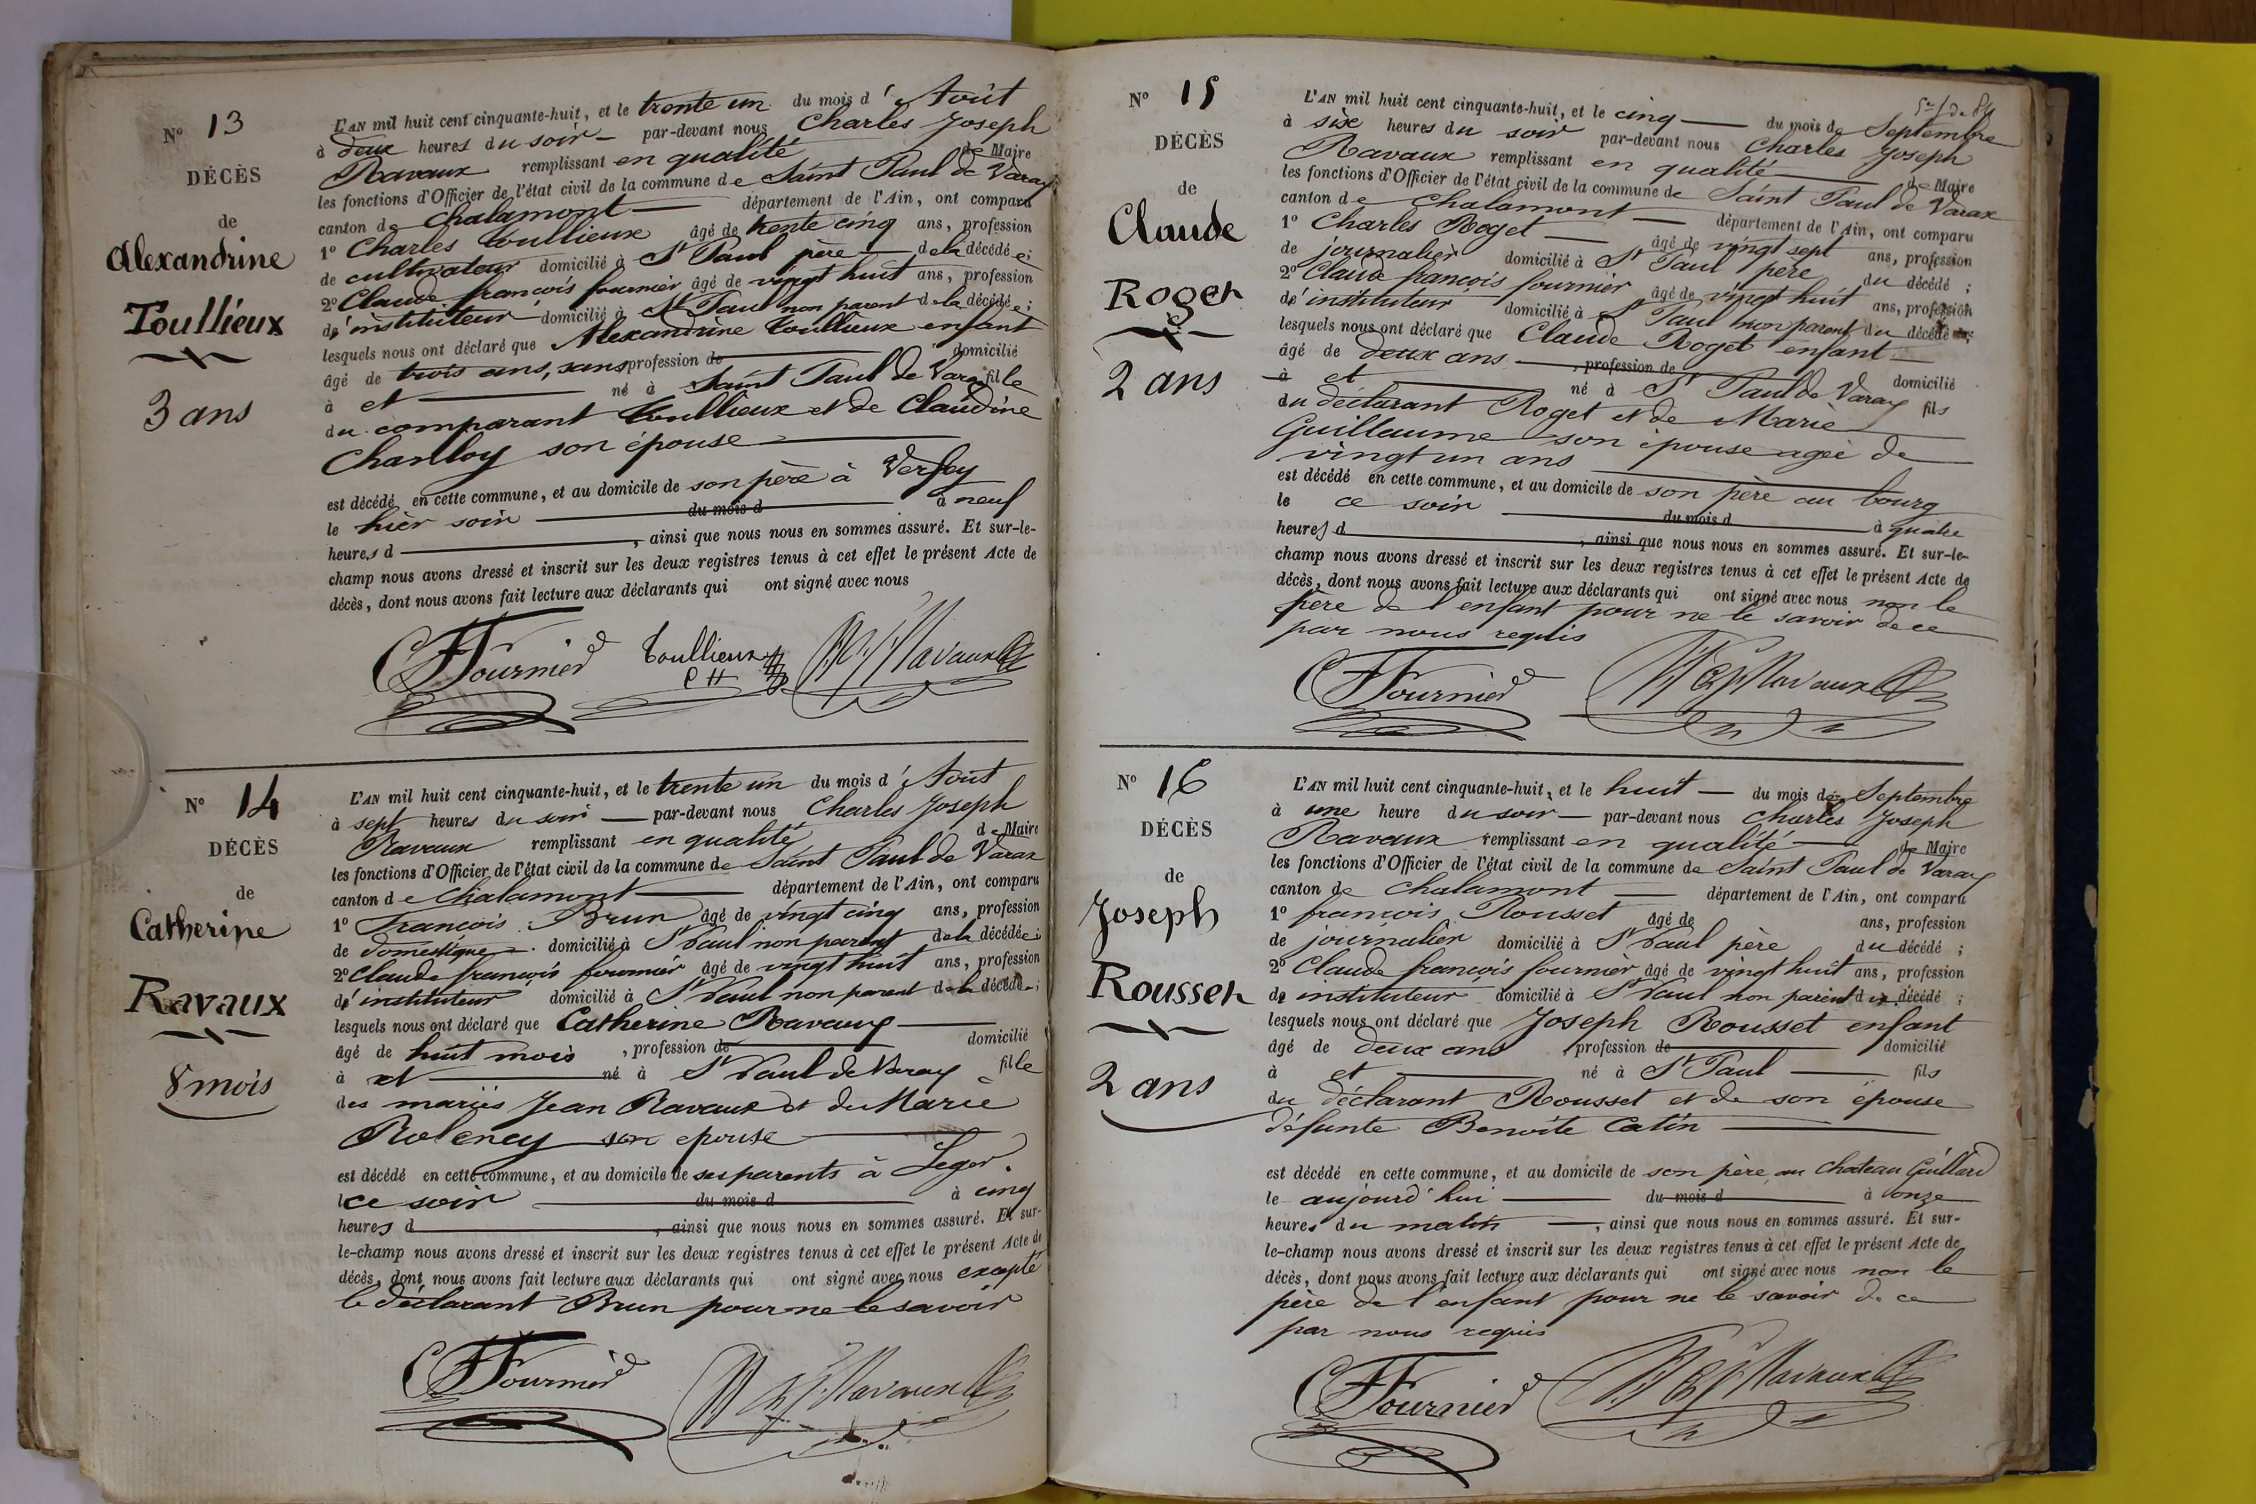 N° 13
DÉCÈS
de
Alexandrine
Toullieux
3 ans
L'AN mil huit cent cinquante-huit, et le trente un du mois d'Août
à deux heures du soir par-devant nous Charles Joseph
Ravaux remplissant en qualité de Maire
les fonctions d'Officier de l'état civil de la commune de Saint Paul de Varax
canton de Chalamont département de l'Ain, ont comparu
1° Charles Toullieux âgé de trente cinq ans, profession
de cultivateur domicilié à St Paul père de la décédée;
2° Claude françois fournier âgé de vingt huit ans, profession
d'instituteur domicilié à St Paul non parent de la décédée;
lesquels nous ont déclaré que Alexandrine Toullieux enfant
âgé de trois ans, sans profession de domicilié
à et né à Saint Paul de Varax fille
du comparant Toullieux et de Claudine
son épouse
est décédé en cette commune, et au domicile de son père à
le hier soir du mois d à neuf
heures d , ainsi que nous nous en sommes assuré. Et sur-le-
champ nous avons dressé et inscrit sur les deux registres tenus à cet effet le présent Acte de
décès, dont nous avons fait lecture aux déclarants qui ont signé avec nous
CF Fournier Toullieux Ravaux
N° 14
DÉCÈS
de
Catherine
Ravaux
8 mois
L'AN mil huit cent cinquante-huit, et le trente un du mois d'Août
à sept heures du soir par-devant nous Charles Joseph
Ravaux remplissant en qualité de Maire
les fonctions d'Officier de l'état civil de la commune de Saint Paul de Varax
canton de Chalamont département de l'Ain, ont comparu
1° François Brun âgé de vingt cinq ans, profession
de domestique domicilié à St Paul non parent de la décédée;
2° Claude françois fournier âgé de vingt huit ans, profession
d'instituteur domicilié à St Paul non parent de la décédée;
lesquels nous ont déclaré que Catherine Ravaux
âgé de huit mois , profession de domicilié
à et né à St Paul de Varax fille
des mariés Jean Ravaux et de Marie
son epouse
est décédé en cette commune, et au domicile de ses parents à Leger.
le ce soir du mois d à cinq
heures d , ainsi que nous nous en sommes assuré. Et sur-
le-champ nous avons dressé et inscrit sur les deux registres tenus à cet effet le présent Acte de
décès, dont nous avons fait lecture aux déclarants qui ont signé avec nous excepté
le déclarant Brun pour ne le savoir
CF Fournier Ravaux
N° 15
DÉCÈS
de
Claude
Roget
2 ans
L'AN mil huit cent cinquante-huit, et le cinq du mois de Septembre
à six heures du soir par-devant nous Charles Joseph
Ravaux remplissant en qualité de Maire
les fonctions d'Officier de l'état civil de la commune de Saint Paul de Varax
canton de Chalamont département de l'Ain, ont comparu
1° Charles Roget âgé de vingt sept ans, profession
de journalier domicilié à St Paul père du décédé;
2° Claude françois fournier âgé de vingt huit ans, profession
d'instituteur domicilié à St Paul non parent du décédé;
lesquels nous ont déclaré que Claude Roget enfant
âgé de deux ans , profession de domicilié
à et né à St Paul de Varax fils
du déclarant Roget et de Marie
Guillaume son épouse agée de
vingt un ans
est décédé en cette commune, et au domicile de son père au bourg
le ce soir du mois d à quatre
heures d , ainsi que nous nous en sommes assuré. Et sur-le-
champ nous avons dressé et inscrit sur les deux registres tenus à cet effet le présent Acte de
décès, dont nous avons fait lecture aux déclarants qui ont signé avec nous non le
père de l'enfant pour ne le savoir de ce
par nous requis
CF Fournier Ravaux
N° 16
DÉCÈS
de
Joseph
Rousset
2 ans
L'AN mil huit cent cinquante-huit, et le huit du mois de Septembre
à une heure du soir par-devant nous Charles Joseph
Ravaux remplissant en qualité de Maire
les fonctions d'Officier de l'état civil de la commune de Saint Paul de Varax
canton de Chalamont département de l'Ain, ont comparu
1° françois Rousset âgé de ans, profession
de journalier domicilié à St Paul père du décédé;
2° Claude françois fournier âgé de vingt huit ans, profession
de instituteur domicilié à St Paul non parent du décédé;
lesquels nous ont déclaré que Joseph Rousset enfant
âgé de deux ans , profession de domicilié
à et né à St Paul fils
du déclarant Rousset et de son épouse
défunte Benoite Catin
est décédé en cette commune, et au domicile de son père au chateau Guillard
le aujourd'hui du mois d à onze
heures du matin , ainsi que nous nous en sommes assuré. Et sur-
le-champ nous avons dressé et inscrit sur les deux registres tenus à cet effet le présent Acte de
décès, dont nous avons fait lecture aux déclarants qui ont signé avec nous non le
père de l'enfant pour ne le savoir de ce
par nous requis
CF Fournier Ravaux